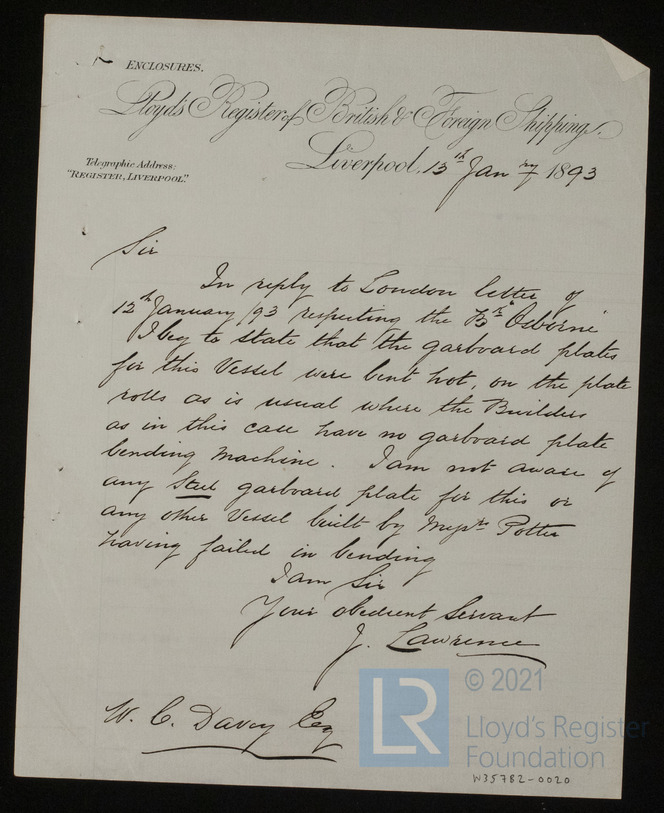 ENCLOSURES.
Lloyd's Register of British & Foreign Shipping.
Liverpool, 13th Janry 1893
Telegraphic Address:
"REGISTER, LIVERPOOL."
Sir
In reply to London letter of
12th January /93 respecting the "Osborne"
I beg to state that the garboard plates
for this Vessel were bent hot, on the plate
rolls as is usual where the Builders
as in this case have no garboard plate
bending machine. I am not aware of
any Steel garboard plate for this or
any other Vessel built by Messrs Potter
having failed in bending
I am Sir
Your obedient Servant
J. Lawrence
W. C. Davey Esq
LR
© 2021
Lloyd's Register
Foundation
W35782-0020